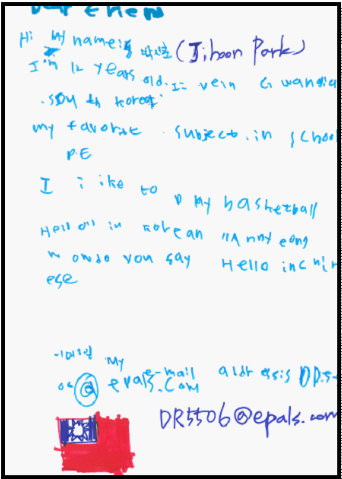 Hi my name is 박지훈 (Jihoon Park)
I'm 12 years old. I live in Gwangju
.south korea
my favorite subject in school
PE
I like to play basketball
Hello in korean "Annyeong
How do you say Hello in chin
ese
my e-mail address is DR55
06@epals.com
DR5506@epals.com